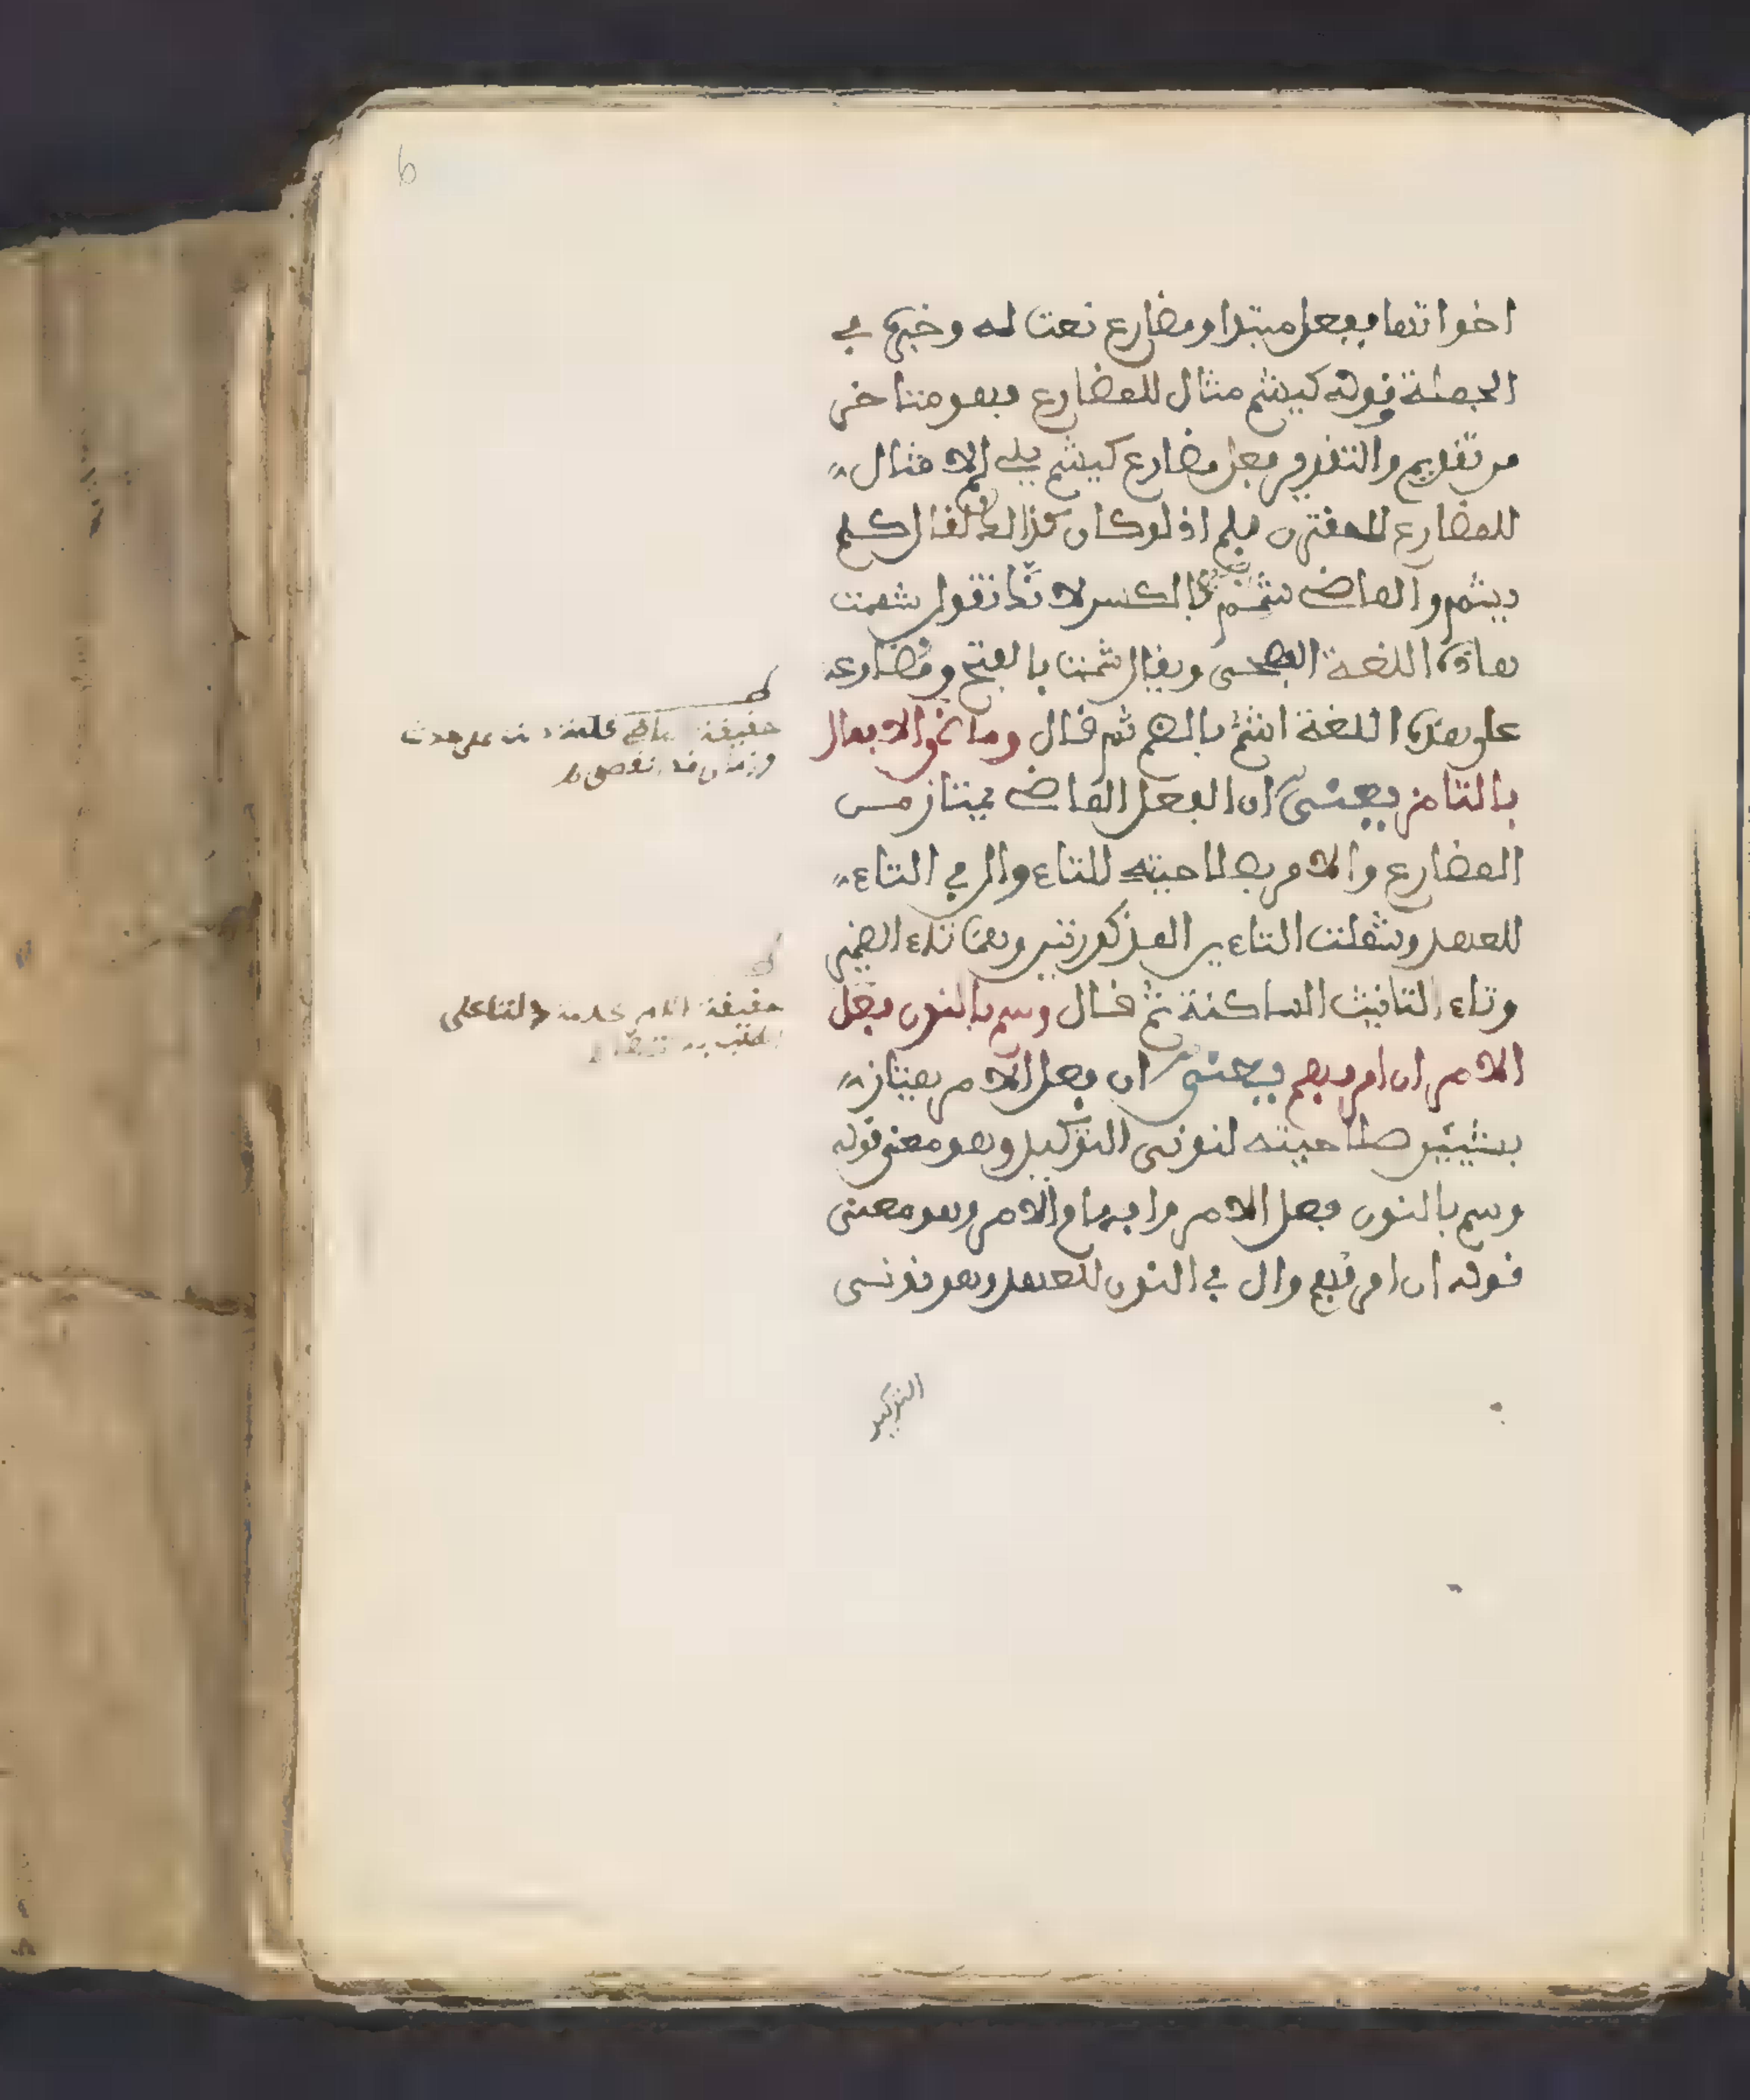 اخواتها ففعل مبتدا ومضارع نعت له وخبره في
الجملة قوله كيشم مثال للمضارع فهو متاخر
من تقديم والتقدير فعل مضارع كيشم يلي لم لا مثال
للمضارع المقترن بلم اذ لو كان كذالك لقال كلم
يشم والماضي شمم بالكسر لانك تقول شممت
هاذه اللغة الفصحى ويقال شممت بالفتح ومضارعه
على هذه اللغة اشم بالضم ثم قال وماضي الافعال
بالتا مز يعني ان الفعل الماضي يمتاز من
المضارع والامر بصلاحيته للتاء وال في التاء
للعهد وشملت التاءين المذكورتين وهما تاء الضمير
وتاء التانيث الساكنة ثم قال وسم بالنون فعل
الامر ان امر فهم يعني ان فعل الامر يمتاز
بشيئين صلاحيته لنوني التوكيد وهو معنى قوله
وسم بالنون فعل الامر وافهام الامر وهو معنى
قوله ان امر فهم وال في النون للعهد وهو نوني
التوكيد
ط
حقيقة الماضي كلمة دلت على حدث
وزمان قد انقضى
ط
حقيقة الامر كلمة دلت على